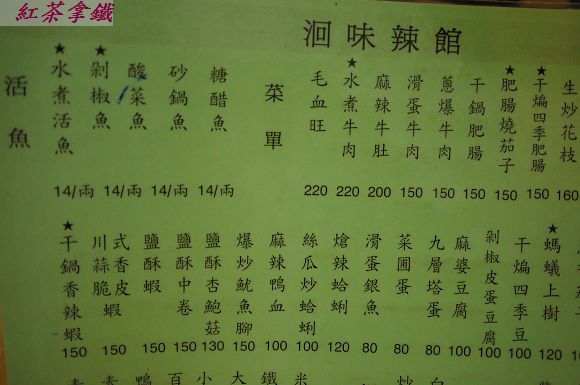 紅茶拿鐵
洄味辣館
活魚
★水煮活魚
★剁椒魚
酸菜魚
砂鍋魚
糖醋魚
14/兩 14/兩 14/兩 14/兩
菜單
毛血旺
★水煮牛肉
麻辣牛肚
滑蛋牛肉
蔥爆牛肉
干鍋肥腸
★肥腸燒茄子
★干煸四季肥腸
生炒花枝
220 220 200 150 150 150 150 150 160
★干鍋香辣蝦
川式蒜香脆皮蝦
鹽酥蝦
鹽酥中卷
鹽酥杏鮑菇
爆炒魷魚腳
麻辣鴨血
絲瓜炒蛤蜊
熗辣蛤蜊
滑蛋銀魚
菜圃蛋
九層塔蛋
麻婆豆腐
剁椒皮蛋豆腐
干煸四季豆
★螞蟻上樹
150 150 150 150 130 150 100 100 120 80 80 80 100 100 100 120